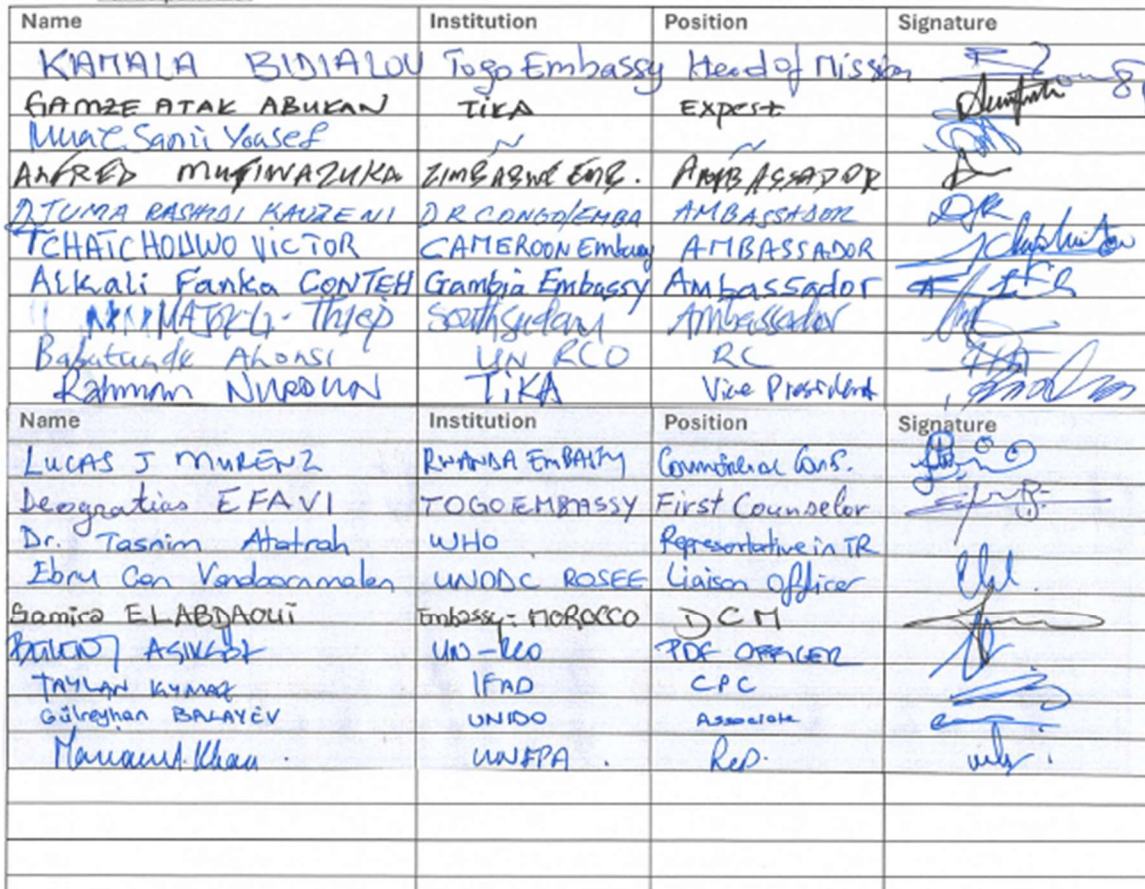 Name Institution Position Signature
KAMALA BIDIALOU Togo Embassy Head of Mission
GAMZE ATAK ABUKAN TİKA Expert
Murat Samii Yousef ~ ~
ALFRED MUTIWAZUKA ZIMBABWE EMB. AMBASSADOR
DJUMA RASHIDI KAUZENI DR CONGO/EMBA AMBASSADOR
TCHATCHOUWO VICTOR CAMEROON Embassy AMBASSADOR
Alkali Fanka CONTEH Gambia Embassy Ambassador
Thiep South sudan Ambassador
Babatunde Ahonsi UN RCO RC
Rahman NURDUN TiKA Vice President
Name Institution Position Signature
LUCAS J MURENZ RWANDA EMBASSY Commercial Cons.
Deogratias EFAVI TOGO EMBASSY First Counselor
Dr. Tasnim Atatrah WHO Representative in TR
Ebru Can Vandoornmalen UNODC ROSEE Liaison Officer
Samira EL ABDAOUI Embassy - MOROCCO DCM
UN-RCO OFFICER
TAYLAN KYMAZ IFAD CPC
Gülreyhan BALAYEV UNIDO Associate
Mariam A. Khan . UNFPA . Rep.